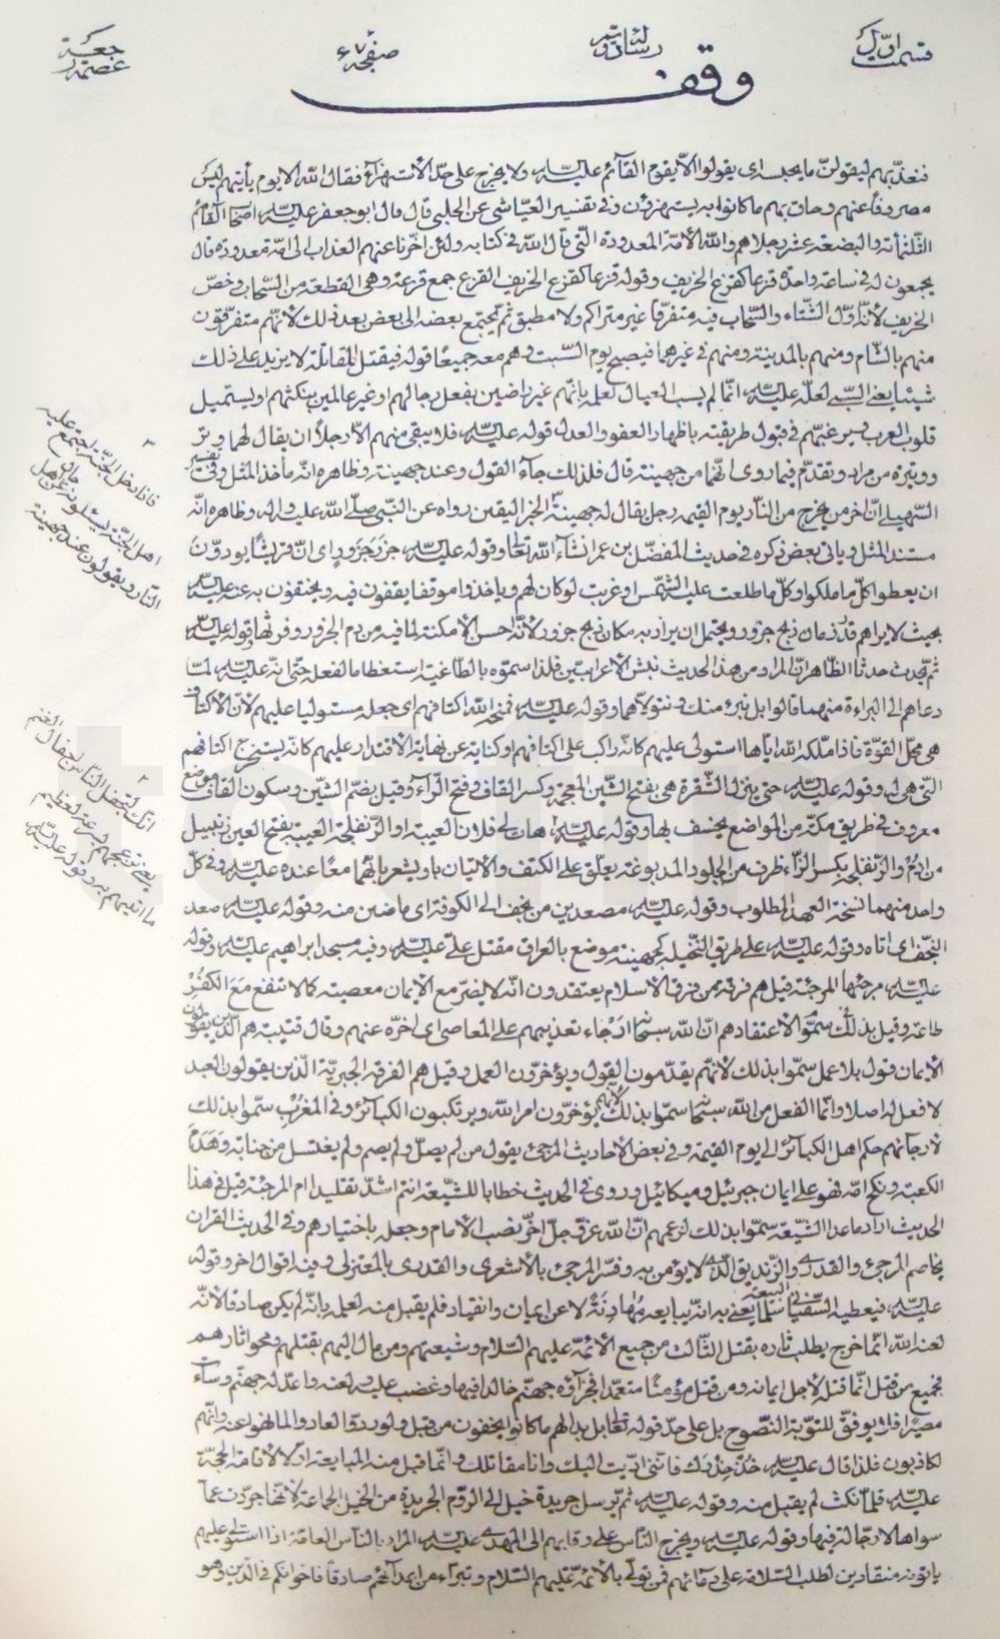 قسمت اول
رسالة رؤيتيه
صفحه ٦٧
وقف
فنعذّبهم ليقولنّ ما يحبسه اى يقولوا الا يقوم القائم عليه السلام ولا يخرج على حدّ الاستهزاء فقال الله الا يوم يأتيهم ليس
مصروفا عنهم وحاق بهم ما كانوا به يستهزؤن وفي تفسير العيّاشي عن الحلبي قال قال ابو جعفر عليه السلام اصحاب القائم
الثلثمأة والبضعة عشر رجلا هم والله الامّة المعدودة التي قال الله في كتابه ولئن اخّرنا عنهم العذاب الى امّة معدودة قال
يجمعون له في ساعة واحدة قزعا كقزع الخريف وقوله قزعا كقزع الخريف القزع جمع قزعة وهى القطعة من السّحاب وخصّ
الخريف لانّه اوّل الشّتاء والسّحاب فيه متفرّقا غير متراكم ولا مطبق ثم يجتمع بعضه الى بعض بعد ذلك لانّهم متفرّقون
منهم بالشام ومنهم بالمدينة ومنهم في غيرهما فيصبح يوم السّبت وهم معه جميعًا قوله فيقتل المقاتلة لا يزيد على ذلك
شيئا يعنى السّبى لعلّه عليه السلام انّما لم يسب العيال لعلمه بانّهم غير راضين بفعل رجالهم او غير عالمين بنكثهم او يستميل
قلوب العرب ويرغّبهم في قبول طريقته باظهار العفو والعدل قوله عليه السلام فلا يبقى منهم الا رجلان يقال لهما وتر
ووتيرة من مراد وتقدّم فيما روى انّهما من جهينة قال فلذلك جاء القول وعند جهينة وظاهره انّه مأخذ المثل وفي تفسير
السهيلى انّ اخر من يخرج من النّار يوم القيمة رجل يقال له جهينة الخبر اليقين رواه عن النّبي صلّى الله عليه واله وظاهره انّه
مستند المثل ويأتى بعض ذكره في حديث المفضّل بن عمر انشاء الله تعالى وقوله عليه السلام جزر جزور اى انّ قريشًا يودّون
ان يعطوا كلّ ما ملكوا وكلّ ما طلعت عليه الشّمس او غربت لو كان لهم ويأخذوا موقفا يقفون فيه ويختفون به عنه عليه السلام
بحيث لا يراهم قدر زمان ذبح جزور ويحتمل ان يراد به مكان ذبح جزور لانّه احسن الامكنة لما فيه من دم الجزور وفرثها قوله عليه السلام
ثم يحدث حدثا الظاهر انّ المراد من هذا الحديث نبش الاعرابيّين فلذا سمّوه بالطّاغية استعظاما لفعله حتّى انّه عليه السلام لمّا
دعاهم الى البراءة منهما قالوا بل نبرء منك ونتولاهما وقوله عليه السلام فمنحه الله اكتافهم اى جعله مستوليا عليهم لانّ الاكتاف
هى محلّ القوّة فاذا ملّكه الله ايّاها استولى عليهم كانّه راكب على اكتافهم وكناية عن نهاية الاقتدار عليهم كانّه يستخرج اكتافهم
التّى هى له وقوله عليه السلام حتى ينزل الشّقرة هى بفتح الشّين المعجمة وكسر القاف وفتح الرّاء وقيل بضمّ الشّين وسكون القاف موضع
معروف في طريق مكّة من المواضع يخسف بها وقوله عليه السلام هات لى فلان العيبة او الزنفلجة العيبة بفتح العين زنبيل
من ادم والزنفلجة بكسر الزّاء ظرف من الجلود المدبوغة يعلّق على الكتف والاتيان باو يشعر بانّهما معًا عنده عليه السلام وفي كلّ
واحد منهما نسخة العهد المطلوب وقوله عليه السلام مصعدين من نجف الى الكوفة اى ماضين منه وقوله عليه السلام صعد
النّجف اى اتاه وقوله عليه السلام على طريق النّخيلة كجهينة موضع بالعراق مقتل علىّ عليه السلام وفيه مسجد ابراهيم عليه السلام وقوله
عليه السلام مرجئها المرجئة قيل هم فرقة من فرق الاسلام يعتقدون انّه لا يضرّ مع الايمان معصية كما لا تنفع مع الكفر
طاعة وقيل بذلك سمّوا لاعتقادهم انّ الله سبحانه ارجاء تعذيبهم على المعاصى اى اخّره عنهم وقال قتيبة هم الّذين يقولون
الايمان قول بلا عمل سمّوا بذلك لانّهم يقدّمون القول ويؤخّرون العمل وقيل هم الفرقة الجبريّة الّذين يقولون العبد
لا فعل له اصلا وانّما الفعل من الله سبحانه سمّوا بذلك لانّهم يؤخّرون امر الله ويرتكبون الكبائر وفي المغرب سمّوا بذلك
لارجائهم حكم اهل الكبائر الى يوم القيمة وفي بعض الاحاديث المرجئ يقول من لم يصلّ ولم يصم ولم يغتسل من جنابة وهدم
الكعبة ونكح امّه فهو على ايمان جبرئيل وميكائيل وروى في الحديث خطابا للشّيعة انتم اشدّ تقليدا ام المرجئة قيل في هذا
الحديث اراد ما عدا الشّيعة سمّوا بذلك لزعمهم انّ الله عزّ وجلّ اخّر نصب الامام وجعله باختيارهم وفي الحديث القران
يخاصم المرجئ والقدرى والزّنديق الّذى لا يؤمن به وفسّر المرجئ بالاشعرى والقدرى بالمعتزلى وفيه اقوال اخر وقوله
عليه السلام فيعطيه السّفيانى البيعة سلما يعنى به انّه يبايعه مهادنة لا عن ايمان وانقياد فلم يقبل منه لعلمه بانّه لم يكن صادقا لانّه
لعنه الله انّما خرج يطلب ثاره بقتل الثّالث من جميع الائمّة عليهم السّلام وشيعتهم ومن مال اليهم بقتلهم ومحو اثارهم
فجميع من قتل انّما قتله لاجل ايمانه ومن قتل مؤمنًا متعمّدا فجزاؤه جهنّم خالدا فيها وغضب عليه ولعنه واعدّ له جهنّم وساءت
مصيرًا فلا يوفّق للتّوبة النّصوح بل على حدّ قوله تعالى بل بدا لهم ما كانوا يخفون من قبل ولو ردّوا لعادوا لما نهوا عنه وانّهم
لكاذبون فلذا قال عليه السلام خذ حذرك فانّنى ادّيت اليك وانا مقاتلك وانّما قبل منه المبايعة اوّلا لاقامة الحجّة
عليه السلام فلمّا نكث لم يقبل منه وقوله عليه السلام ثم يرسل جريدة خيل الى الرّوم الجريدة من الخيل الجماعة لانّها جرّدت عمّا
سواها لا رجّالة فيها وقوله عليه السلام ويخرج النّاس على رقابهم الى المهدى عليه السلام المراد بالنّاس العامّة اذا استولى عليهم
يأتونه منقادين لطلب السّلامة على دمائهم فمن تولّى بالائمّة عليهم السّلام وتبرّاء من اعدائهم صادقًا فاخوانكم في الدّين وهو
فاذا دخل الجنّة اجتمع عليه
اهل الجنّة يسئلونه عن اهل
النّار ويقولون عند جهينة
انّك لتجفل النّاس اجفال النعم
يعنى تزعجهم بسرعة لعظيم
ما اتيتهم به وقوله عليه السلام